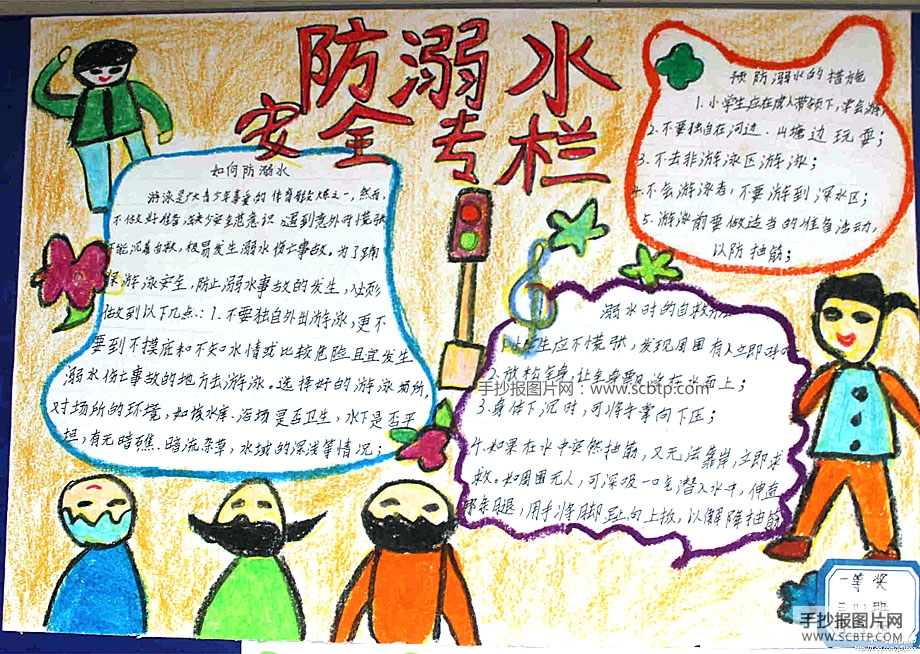 防溺水
安全专栏
如何防溺水
游泳是广大青少年喜爱的体育锻炼之一,然而,
不做好准备、缺少安全意识,遇到意外时慌张
能沉着自救,极易发生溺水伤亡事故。为了确
保游泳安全,防止溺水事故的发生,必须
做到以下几点:1.不要独自外出游泳,更不
要到不摸底和不知水情或比较危险且宜发生
溺水伤亡事故的地方去游泳。选择好的游泳场所,
对场所的环境,如该水库、浴场是否卫生,水下是否平
坦,有无暗礁、暗流、杂草,水域的深浅等情况;
预防溺水的措施
1.小学生应在成人带领下,学会游
2.不要独自在河边、山塘边玩耍;
3.不去非游泳区游泳;
4.不会游泳者,不要游到深水区;
5.游泳前要做适当的准备活动,
以防抽筋;
溺水时的自救方法
生应不慌张,发现周围有人立即呼
2.放松全身,让身体飘浮在水面上;
3.身体下沉时,可将手掌向下压;
4.如果在水中突然抽筋,又无法靠岸,立即求
救。如周围无人,可深吸一口气潜入水中,伸直
腿,用手将脚趾向上扳,以解除抽筋
手抄报图片网:www.scbtp.com
一等奖
手抄报图片网
WWW.SCBTP.COM